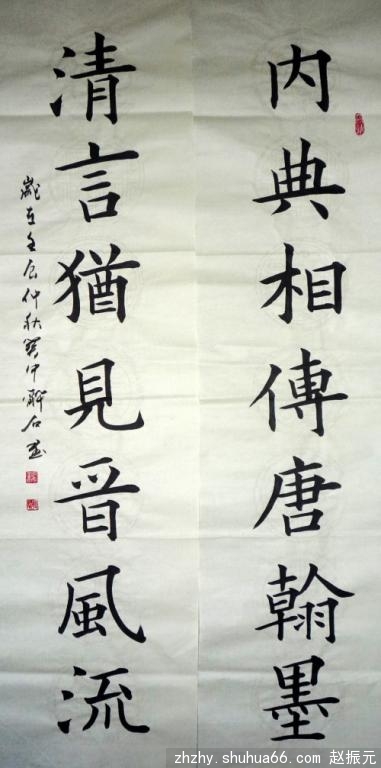 内典相傳唐翰墨
清言猶見晉風流
歲在壬辰仲秋
zhzhy.shuhua66.com 赵振元